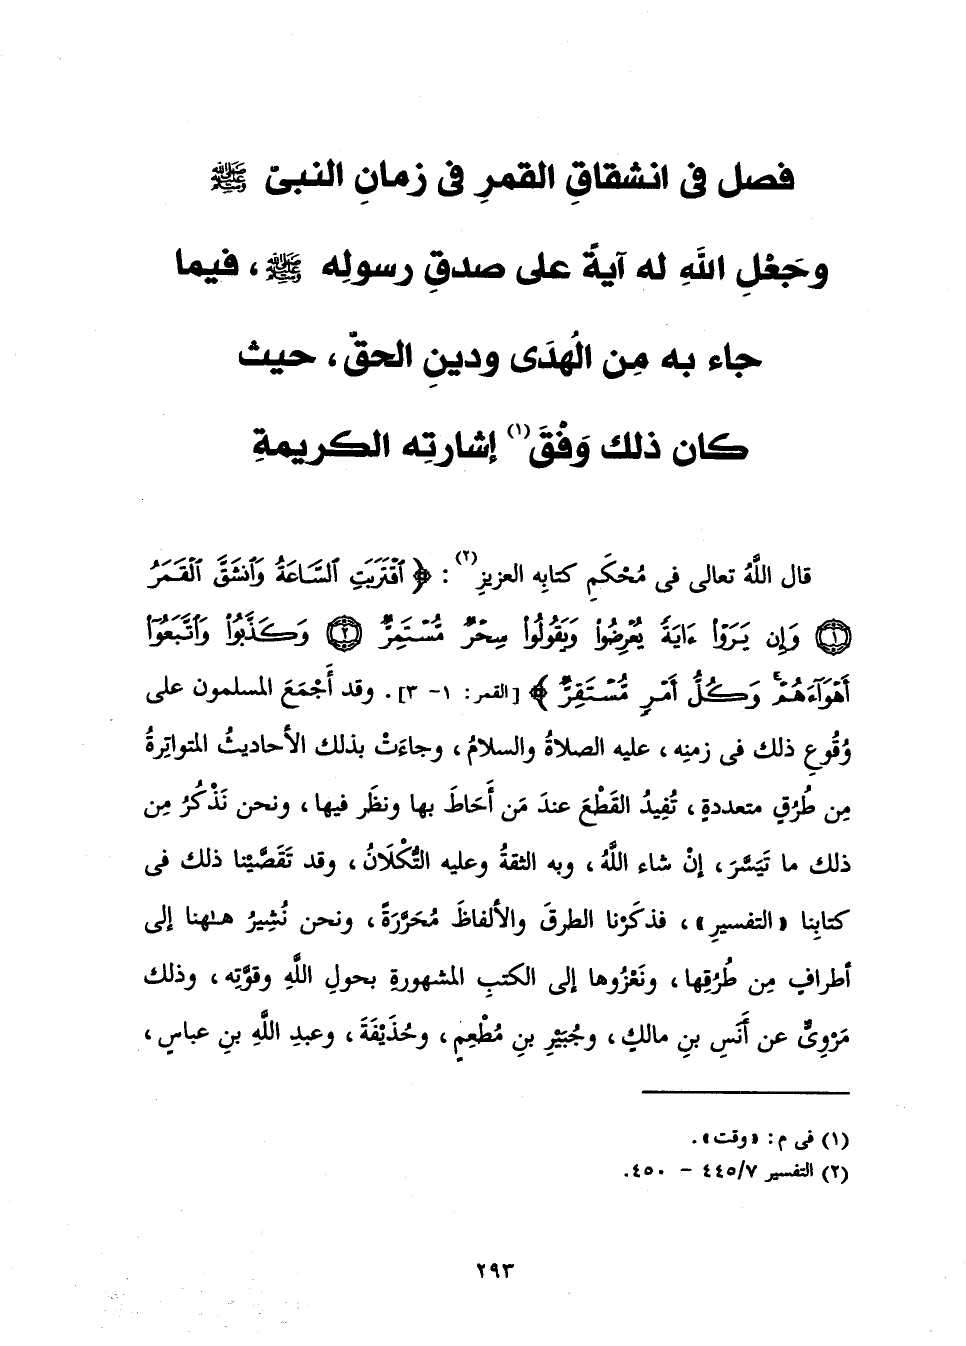 فصل فى انشقاقِ القمرِ فى زمانِ النبىّ ﷺ
وجَعْلِ اللَّهِ له آيةً على صدقِ رسولِه ﷺ ، فيما
جاء به مِن الهُدَى ودينِ الحقِّ ، حيث
كان ذلك وَفْقَ(١) إشارتِه الكريمةِ
قال اللَّهُ تعالى فى مُحْكَمِ كتابِه العزيزِ(٢) : ﴿ ٱقْتَرَبَتِ ٱلسَّاعَةُ وَٱنشَقَّ ٱلْقَمَرُ
(١) وَإِن يَرَوْا۟ ءَايَةً يُعْرِضُوا۟ وَيَقُولُوا۟ سِحْرٌ مُّسْتَمِرٌّ (٢) وَكَذَّبُوا۟ وَٱتَّبَعُوٓا۟
أَهْوَآءَهُمْ ۚ وَكُلُّ أَمْرٍ مُّسْتَقِرٌّ ﴾ [القمر: ١- ٣] . وقد أَجْمَعَ المسلمون على
وُقُوعِ ذلك فى زمنِه ، عليه الصلاةُ والسلامُ ، وجاءَتْ بذلك الأحاديثُ المتواتِرةُ
مِن طُرُقٍ متعددةٍ ، تُفِيدُ القَطْعَ عندَ مَن أَحَاطَ بها ونظَر فيها ، ونحن نَذْكُرُ مِن
ذلك ما تَيَسَّرَ ، إنْ شاء اللَّهُ ، وبه الثقةُ وعليه التُّكْلَانُ ، وقد تَقَصَّيْنا ذلك فى
كتابِنا «التفسيرِ» ، فذكَرْنا الطرقَ والألفاظَ مُحَرَّرَةً ، ونحن نُشِيرُ هـٰهنا إلى
أطرافٍ مِن طُرُقِها ، ونَعْزُوها إلى الكتبِ المشهورةِ بحولِ اللَّهِ وقوَّتِه ، وذلك
مَرْوِىٌّ عن أَنَسِ بنِ مالكٍ ، وجُبَيْرِ بنِ مُطْعِمٍ ، وحُذَيْفَةَ ، وعبدِ اللَّهِ بنِ عباسٍ ،
(١) فى م : «وقت» .
(٢) التفسير ٤٤٥/٧ - ٤٥٠.
٢٩٣